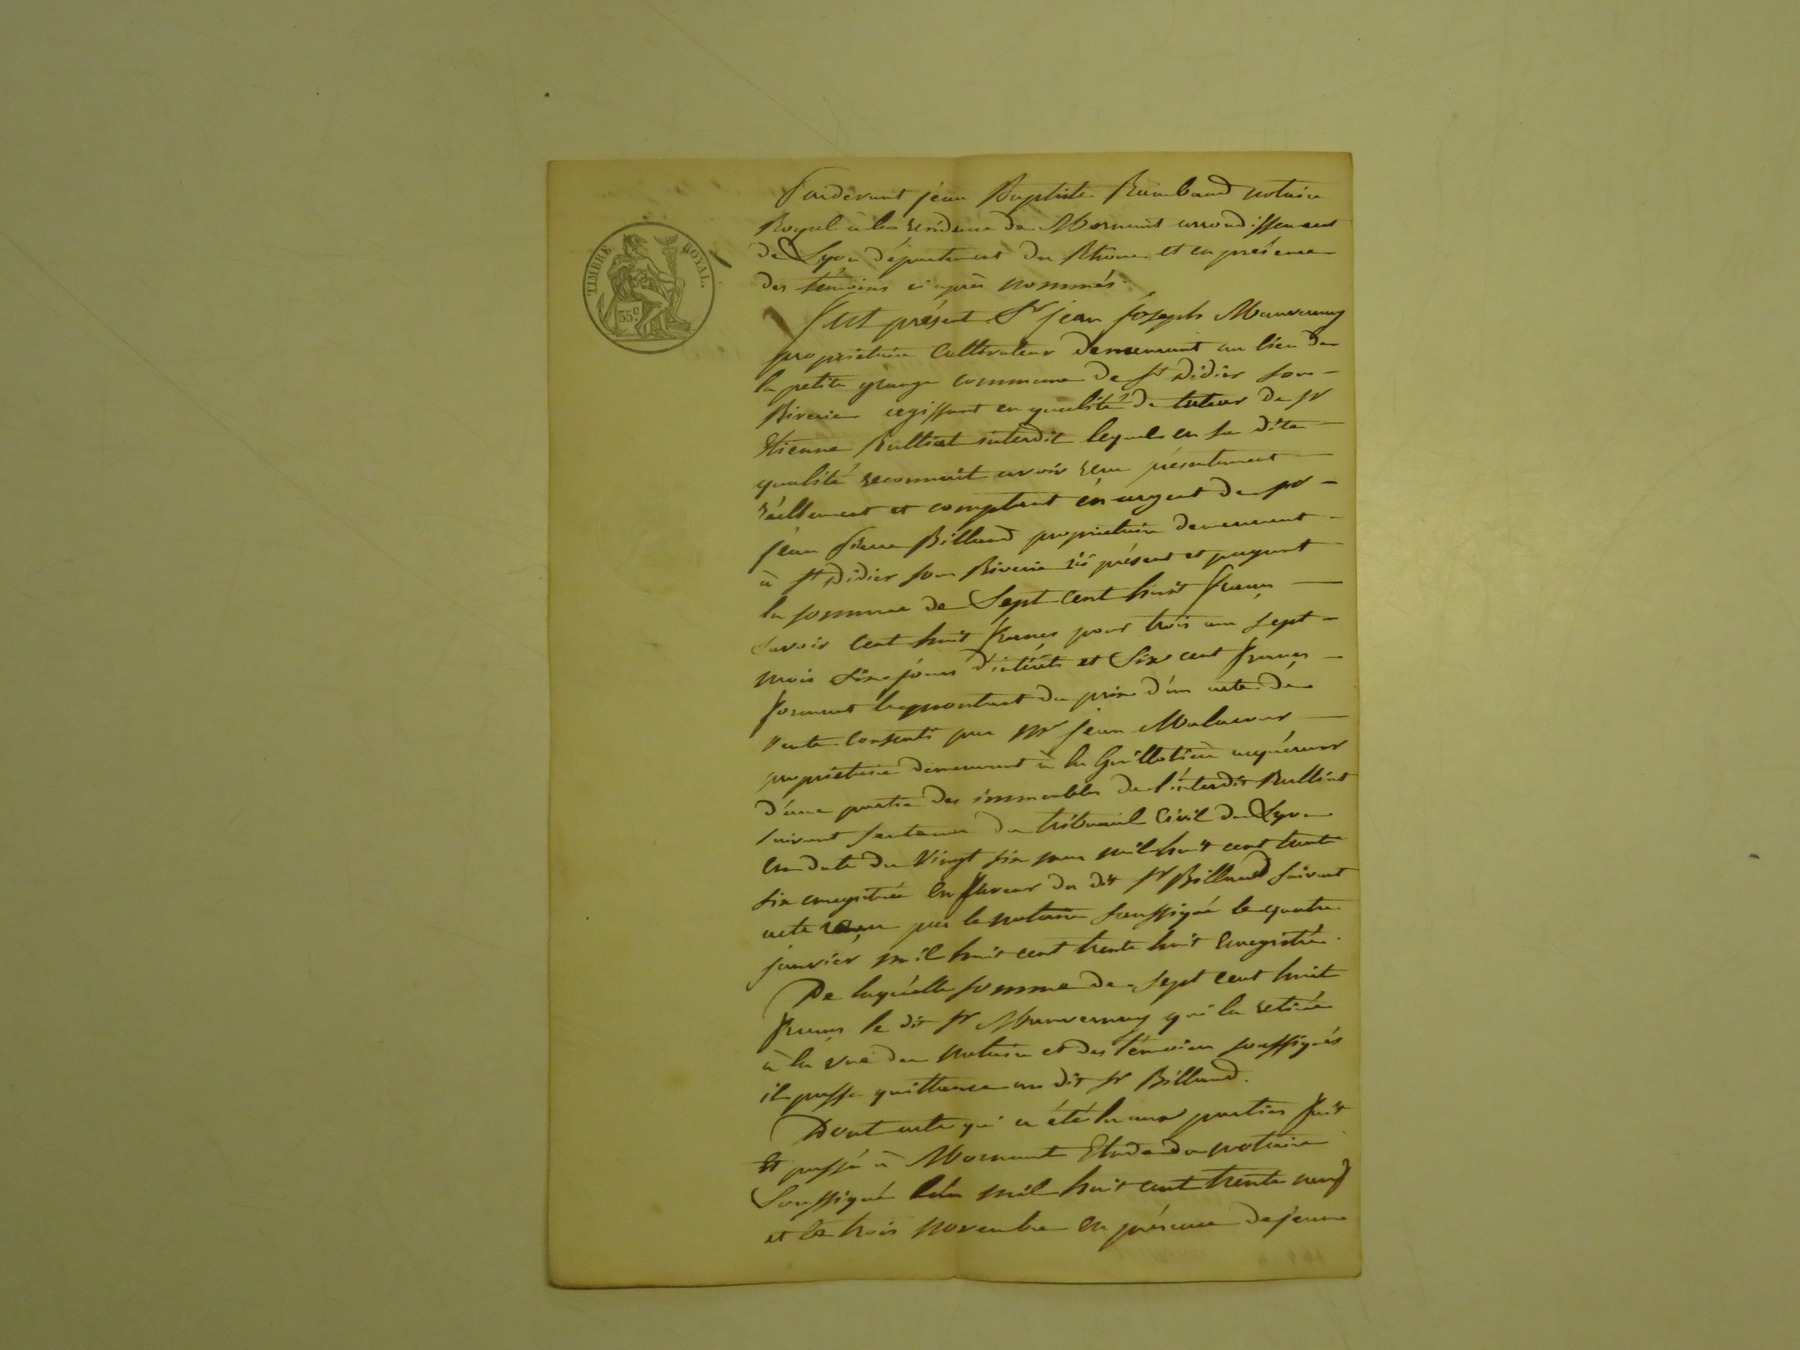 TIMBRE ROYAL.
35c
Pardevant jean Baptiste Raimbaud notaire
Royal à la résidence de Mornant arrondissement
de Lyon département du Rhône et en présence
des témoins ci après nommés.
Fut présent Sr jean joseph Mauvernay
propriétaire Cultivateur demeurant au lieu de
la petite grange commune de St Didier sous
Riverie agissant en qualité de tuteur de Sr
Etienne Bulliat interdit lequel en sa dite
qualité reconnait avoir reçu présentement
réellement et comptant en argent de Sr
jean Pierre Billard propriétaire demeurant
à St Didier sous Riverie ici présent et payant
la somme de Sept cent huit francs
savoir cent huit francs pour trois ans sept
mois six jours d'intérêts et Six cent francs
formant le montant du prix d'un acte de
vente consenti par Mr jean
propriétaire demeurant à la Guillotière acquéreur
d'une partie des immeubles de l'interdit Bulliat
suivant sentence du tribunal Civil de Lyon
en date du Vingt six mars mil huit cent trente
six enregistrée en faveur du dit Sr Billard suivant
acte reçu par le notaire soussigné le quatre
janvier mil huit cent trente huit Enregistré.
De laquelle somme de sept cent huit
francs le dit Sr Mauvernay qui la retirée
à la vue du notaire et des témoins soussignés
il passe quittance au dit Sr Billard.
Dont acte qui a été lu aux parties fait
Et passé à Mornant Etude du notaire
Soussigné L'an mil huit cent trente neuf
et le trois novembre en présence de jean